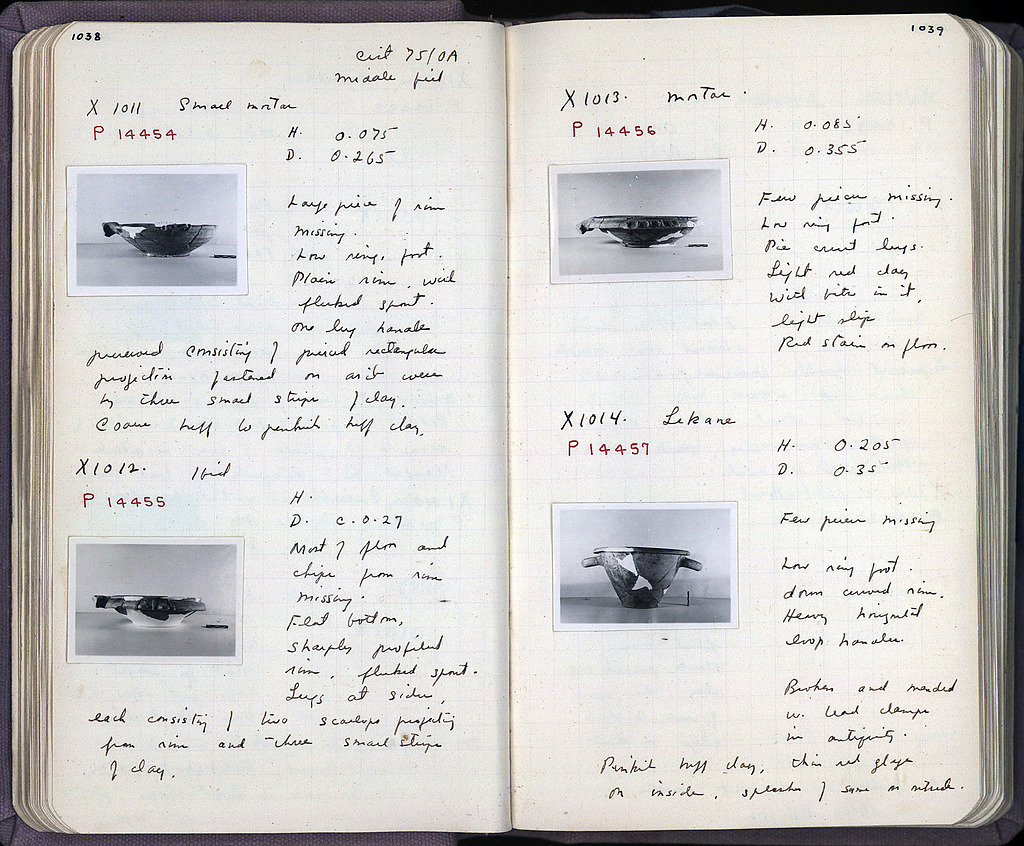 1038
cist 75/OA
Middle fill
X 1011 Small mortar
P 14454
H. 0.075
D. 0.265
Large piece of rim
missing.
Low ring foot.
Plain rim, with
fluked spout.
One lug handle
preserved consisting of pierced rectangular
projection fastened on as it were
by three small strips of clay.
Coarse buff to pinkish buff clay.
X1012. Ibid
P 14455
H.
D. c. 0.27
Most of floor and
chips from rim
missing.
Flat bottom,
sharply profiled
rim, fluked spout.
Lugs at sides,
each consisting of two scallops projecting
from rim and three small strips
of clay.
1039
X1013. Mortar.
P 14456
H. 0.085
D. 0.355
Few pieces missing.
Low ring foot.
Pie crust lugs.
Light red clay
with bits in it,
light slip
Red stain on floor.
X1014. Lekane
P 14457
H. 0.205
D. 0.35
Few pieces missing
Low ring foot.
down curved rim.
Heavy horizontal
loop handles.
Broken and mended
w. lead clamps
in antiquity.
Pinkish buff clay, thin red glaze
on inside, splashes of same on outside.